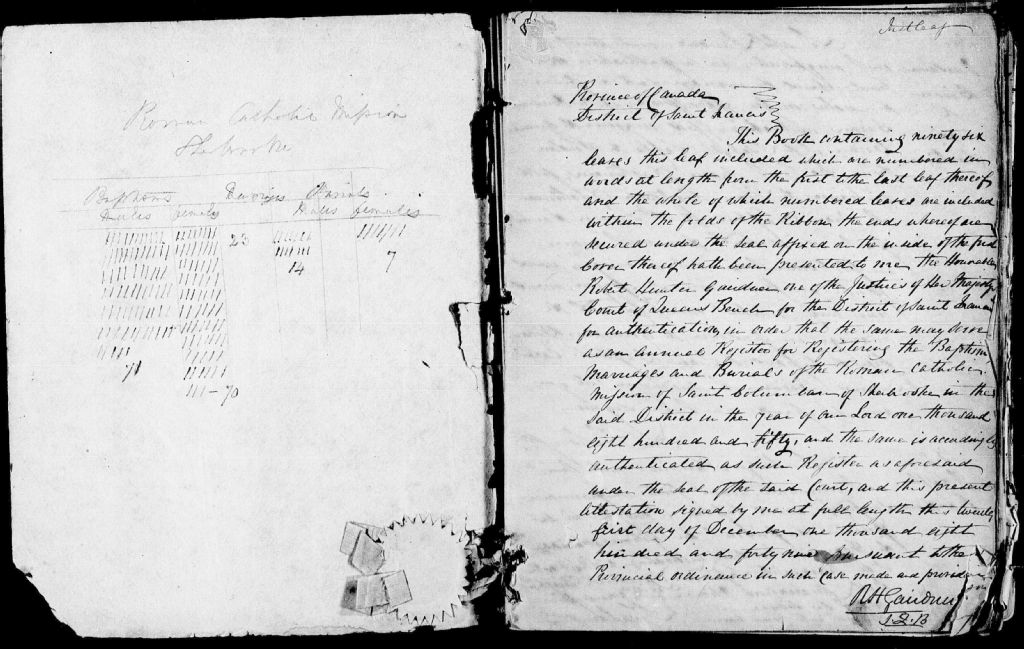 Roman Catholic Mission
Baptisms Marriages Burials
Males females Males females
23
14 7
71
70
first leaf
Province of Canada
District of Saint Francis
This Book containing ninety six
leaves this leaf included which are numbered in
words at length from the first to the last leaf thereof
and the whole of which numbered leaves are included
within the folds of the Ribbon the ends whereof are
secured under the seal affixed on the inside of the first
Cover thereof hath been presented to me the Honorable
Robert Hunter Gairdner one of the Justices of Her Majesty's
Court of Queen's Bench for the District of Saint Francis
for authentication, in order that the same may serve
as an Annual Register for Registering the Baptisms
Marriages and Burials of the Roman Catholic
Mission of Saint Columban of Sherbrooke in the
said District in the year of our Lord one thousand
eight hundred and fifty, and the same is accordingly
authenticated as such Register as aforesaid
under the seal of the said Court, and this present
attestation signed by me at full length this twenty
first day of December one thousand eight
hundred and forty nine pursuant to the
Provincial ordinance in such case made and provided
R H Gairdner
J.Q.B